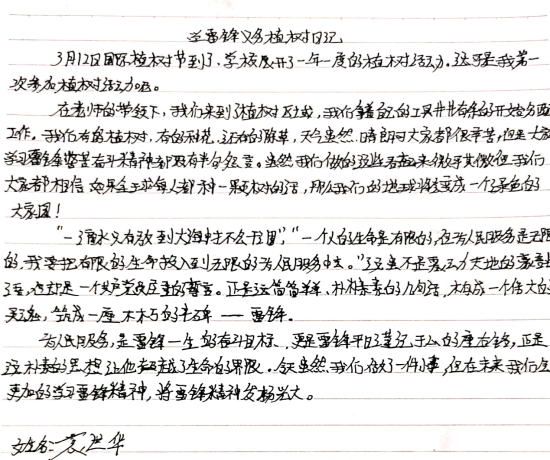 学雷锋义务植树日记
3月12日国际植树节到了,学校展开了一年一度的植树活动,这可是我第一
次参加植树活动呢。
在老师的带领下,我们来到了植树区域,我们拿着自己的工具井井有条的开始分配
工作。我们有的植树,有的种花,还有的除草,天气虽然晴朗可大家都很辛苦,但是大家
学习雷锋艰苦奋斗精神都没有半句怨言。虽然我们做的这些看起来微乎其微但我们
大家都相信如果全球每人都种一棵树的话,那么我们的地球将变成一个绿色的
大家园!
“一滴水只有放到大海中才不会干涸”,“一个人的生命是有限的,但为人民服务是无限
的,我要把有限的生命投入到无限的为人民服务中去。”这虽不是惊天动地的豪言壮
语,也却是一个共产党员的誓言。正是这简简单单、朴朴素素的几句话,构成一个伟大的
灵魂,筑成一座不朽的丰碑——雷锋。
为人民服务,是雷锋一生的奋斗目标、更是雷锋平日谨记于心的座右铭,正是
这朴素的思想让他超越了生命的界限。今天虽然我们做了一件小事,但在未来我们会
更加的学习雷锋精神,将雷锋精神发扬光大。
姓名: